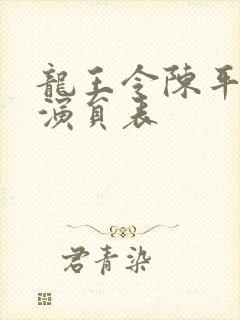 龍王令陳平
演員表
君青染